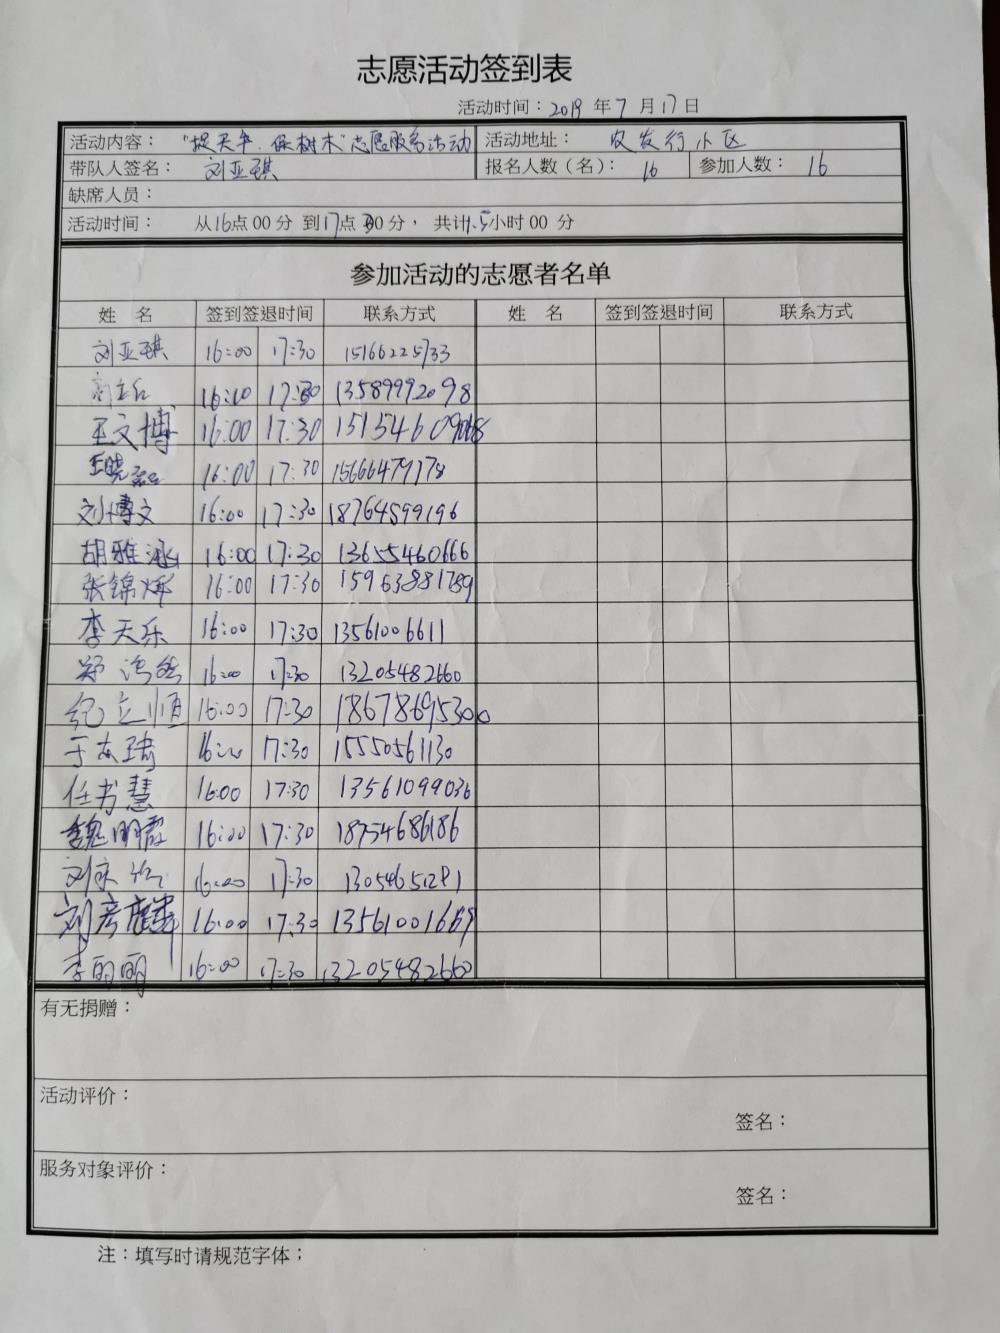 志愿活动签到表
活动时间：2019 年 7 月 17 日
活动内容： "捉天牛.保树木"志愿服务活动 活动地址： 农发行小区
带队人签名： 刘亚琪 报名人数（名）： 16 参加人数： 16
缺席人员：
活动时间： 从16点00分 到17点30分， 共计1.5小时00 分
参加活动的志愿者名单
姓 名 签到签退时间 联系方式 姓 名 签到签退时间 联系方式
刘亚琪 16:00 17:30 15166225733
16:00 17:30 13589992098
王文博 16:00 17:30
王晓 16:00 17:30 15666479778
刘博文 16:00 17:30 18764599196
胡雅涵 16:00 17:30 13655460666
张锦烨 16:00 17:30 15963881789
李天乐 16:00 17:30 13561006611
郑 16:00 17:30 13205482660
纪立恒 16:00 17:30 18678695300
于 16:00 17:30 15550561130
任书慧 16:00 17:30 13561099036
魏明霞 16:00 17:30 18754686186
刘 16:00 17:30 13054651281
刘彦麟 16:00 17:30
李明明 16:00 17:30 13205482660
有无捐赠：
活动评价：
签名：
服务对象评价：
签名：
注：填写时请规范字体；